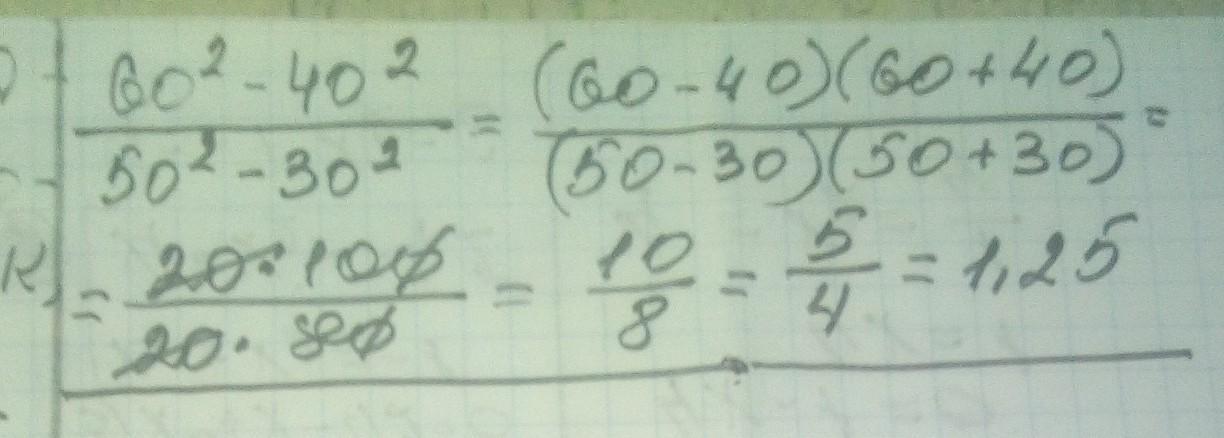 60² - 40² / 50² - 30² = (60 - 40)(60 + 40) / (50 - 30)(50 + 30) =
= 20 · 100 / 20 · 80 = 10 / 8 = 5 / 4 = 1,25